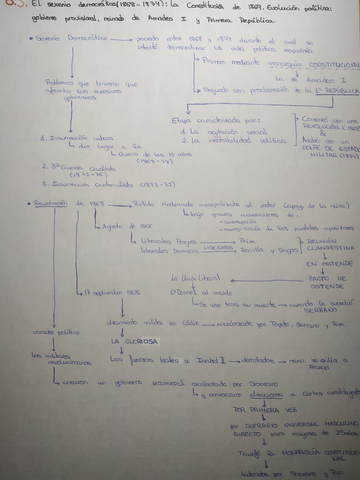 6.3. El sexenio democrático (1868-1874): la Constitución de 1869. Evolución política:
gobierno provisional, reinado de Amadeo I y Primera República.
• Sexenio Democrático → periodo entre 1868 y 1874 durante el cual se
intentó democratizar la vida política española
Primero mediante monarquía CONSTITUCIONAL
la de Amadeo I
Segundo con proclamación de la Iª REPÚBLICA
Problemas que tuvieron que
afrontar los sucesivos
gobiernos
Etapa caracterizada por:
1. La agitación social
2. La inestabilidad política
Comenzó con una
REVOLUCIÓN (1868)
&
Acabó con un
GOLPE DE ESTADO
MILITAR (1874)
1. Insurrección cubana
dio lugar a la
Guerra de los 10 años
(1868-78)
2. 3ª Guerra Carlista
(1872-76)
3. Insurrección Cantonalista (1873-74)
• Revolución de 1868 → Partido Moderado monopolizaba el poder (apoyo de la reina)
bajo graves acusaciones de:
- corrupción
Agosto de 1866
Liberales Progres. → Prim
Liberales
REUNIÓN
CLANDESTINA
EN OSTENDE
PACTO DE
OSTENDE
La Unión Liberal
O'Donnell al mando
Se une tras su muerte → cuando le sucedió
SERRANO
17 septiembre 1868
alzamiento militar en Cádiz → encabezado por Topete, Serrano y Prim
carácter político
LA GLORIOSA
los militares
revolucionarios
Las fuerzas leales a Isabel II → derrotadas → reina se exilia a
Francia
crearon un gobierno provisional encabezado por Serrano
y convocaron elecciones a Cortes constituyentes
POR PRIMERA VEZ
por SUFRAGIO UNIVERSAL MASCULINO
DIRECTO para mayores de 25 años
Triunfó la MONARQUÍA CONSTITUCIO
NAL
liderados por Serrano y Prim